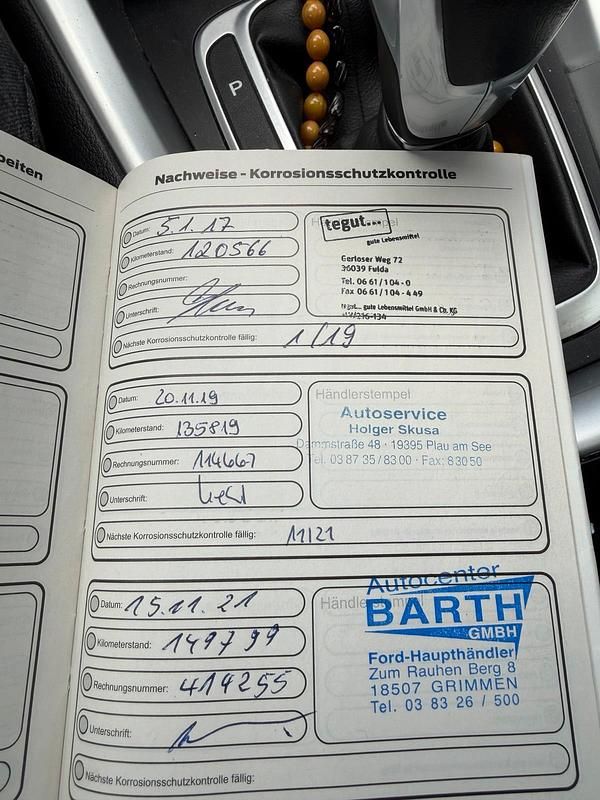 P
beiten
Nachweise - Korrosionsschutzkontrolle
Datum: 5.1.17
Kilometerstand: 120566
Rechnungsnummer:
Unterschrift:
Händlerstempel
tegut...
gute Lebensmittel
Gerloser Weg 72
36039 Fulda
Tel. 06 61 / 1 04 - 0
Fax 06 61 / 1 04 - 4 49
tegut... gute Lebensmittel GmbH & Co. KG
Nächste Korrosionsschutzkontrolle fällig: 1/19
Datum: 20.11.19
Kilometerstand: 135819
Rechnungsnummer: 114667
Unterschrift:
Händlerstempel
Autoservice
Holger Skusa
Dammstraße 48 · 19395 Plau am See
Tel. 03 87 35 / 83 00 · Fax: 8 30 50
Nächste Korrosionsschutzkontrolle fällig: 11/21
Datum: 15.11.21
Kilometerstand: 149799
Rechnungsnummer: 414255
Unterschrift:
Händlerstempel
Autocenter
BARTH
GMBH
Ford-Haupthändler
Zum Rauhen Berg 8
18507 GRIMMEN
Tel. 03 83 26 / 500
Nächste Korrosionsschutzkontrolle fällig: